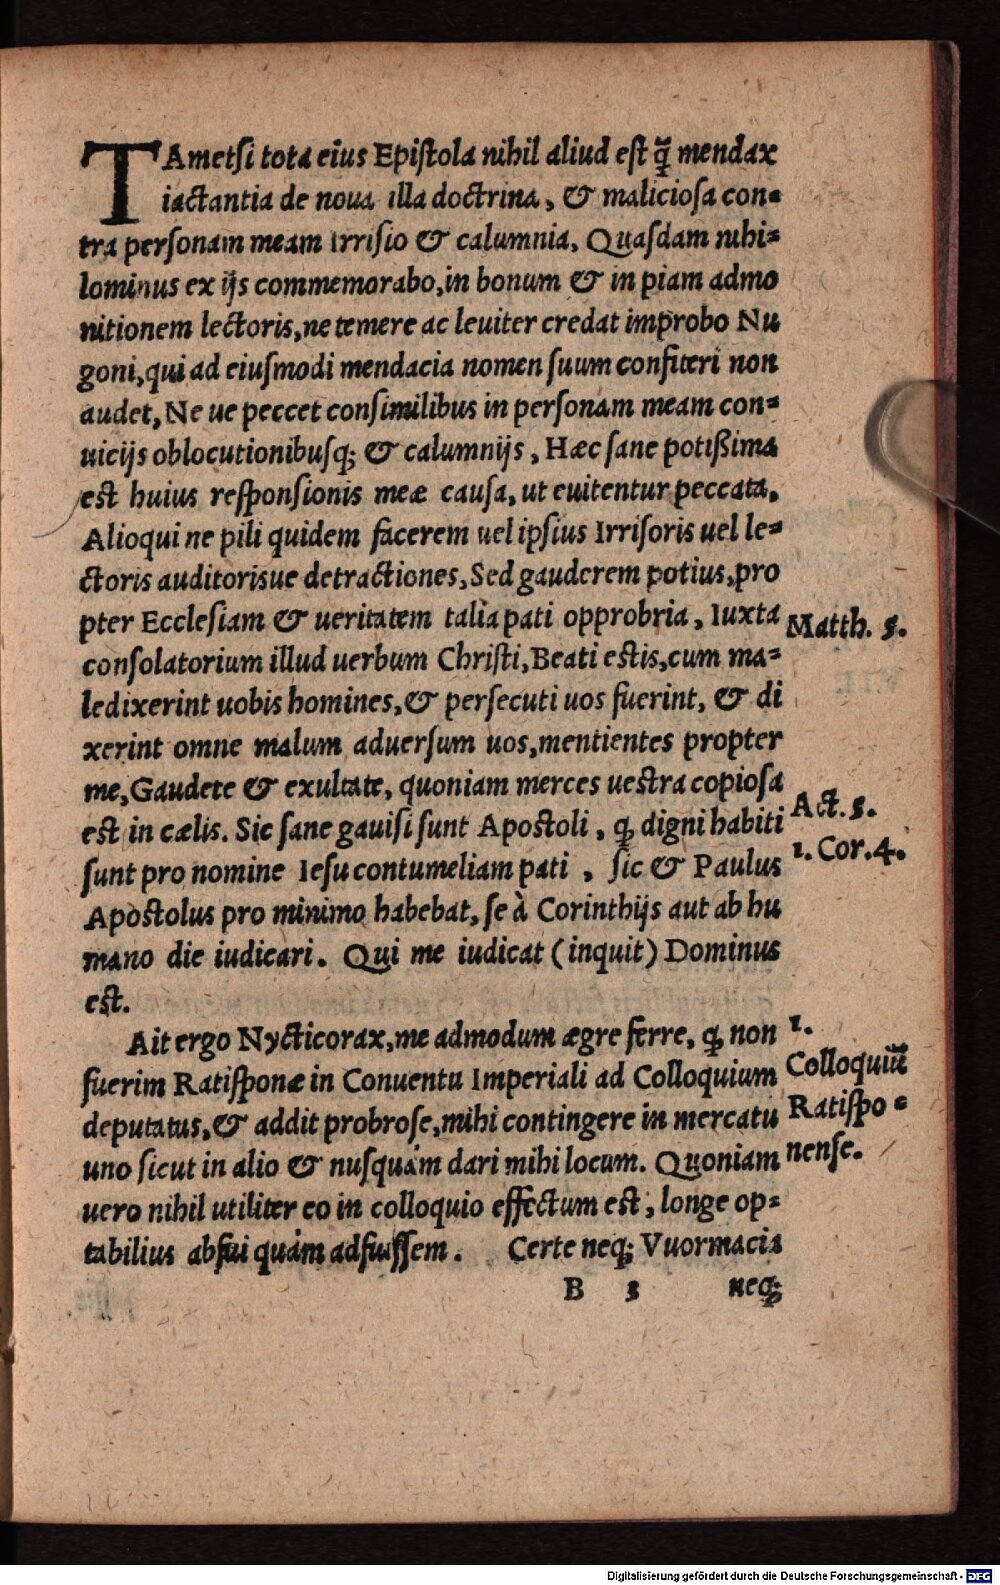 TAmetſi tota eius Epiſtola nihil aliud eſt q̃ mendax
iactantia de noua illa doctrina, & malicioſa con-
tra perſonam meam irriſio & calumnia, Quaſdam nihi-
lominus ex ijs commemorabo, in bonum & in piam admo
nitionem lectoris, ne temere ac leuiter credat improbo Nu
goni, qui ad eiuſmodi mendacia nomen ſuum confiteri non
audet, Ne ue peccet conſimilibus in perſonam meam con-
uicijs oblocutionibuſq; & calumnijs, Hæc ſane potißima
eſt huius reſponſionis meæ cauſa, ut euitentur peccata,
Alioqui ne pili quidem facerem uel ipſius Irriſoris uel le-
ctoris auditorisue detractiones, Sed gauderem potius, pro
pter Eccleſiam & ueritatem talia pati opprobria, Iuxta
Matth. 5.
conſolatorium illud uerbum Chriſti, Beati eſtis, cum ma-
ledixerint uobis homines, & perſecuti uos fuerint, & di
xerint omne malum aduerſum uos, mentientes propter
me, Gaudete & exultate, quoniam merces ueſtra copioſa
eſt in cælis. Sic ſane gauiſi ſunt Apoſtoli, q; digni habiti
Act. 5.
ſunt pro nomine Ieſu contumeliam pati, ſic & Paulus
1. Cor. 4.
Apoſtolus pro minimo habebat, ſe à Corinthijs aut ab hu
mano die iudicari. Qui me iudicat (inquit) Dominus
eſt.
Ait ergo Nycticorax, me admodum ægre ferre, q; non
1.
fuerim Ratiſponæ in Conuentu Imperiali ad Colloquium
Colloquiũ
deputatus, & addit probroſe, mihi contingere in mercatu
Ratiſpo-
uno ſicut in alio & nuſquàm dari mihi locum. Quoniam
nenſe.
uero nihil utiliter eo in colloquio effectum eſt, longe op-
tabilius abfui quàm adfuiſſem. Certe neq; Vuormacia
B 5 neq;
Digitalisierung gefördert durch die Deutsche Forschungsgemeinschaft - DFG